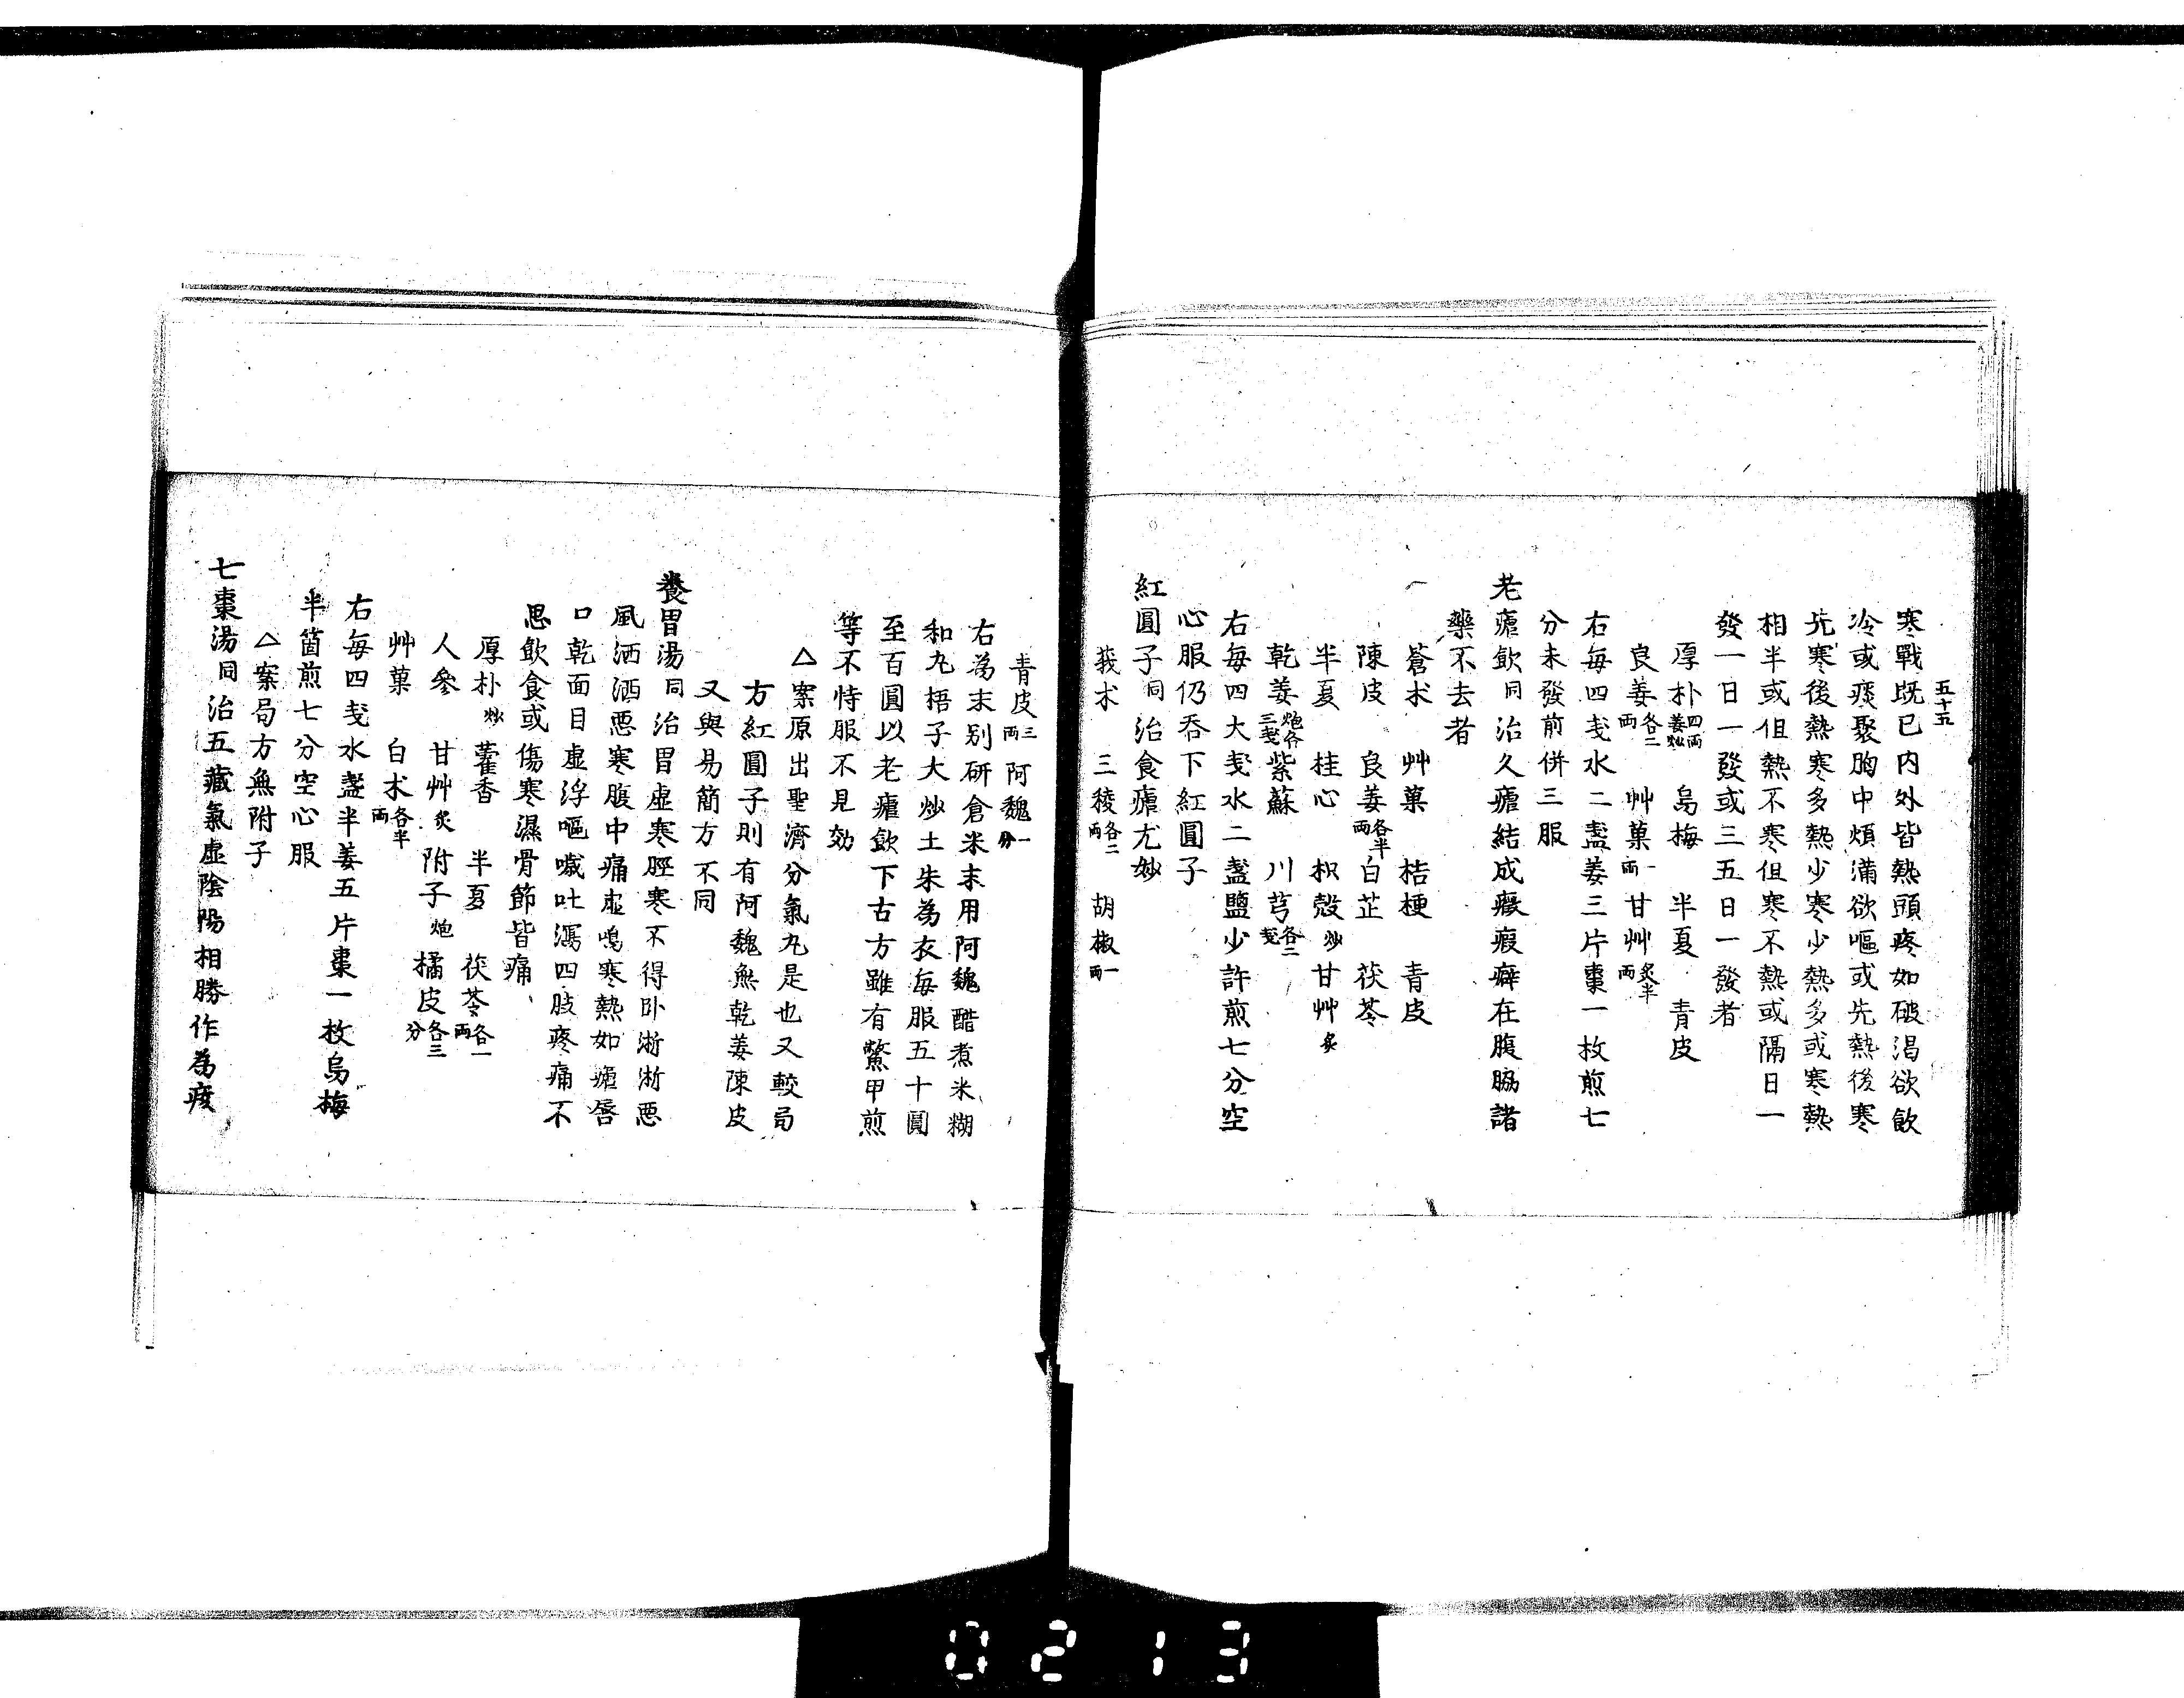 五十五
寒戰既已内外皆熱頭疼如破渇欲飲
冷或痰聚胸中煩滿欲嘔或先熱後寒
先寒後熱寒多熱少寒少熱多或寒熱
相半或但熱不寒但寒不熱或隔日一
發一日一發或三五日一發者
厚朴四兩姜炒 烏梅 半夏 青皮
良姜各二兩 艸菓一兩 甘艸炙半兩
右每四戋水二盞姜三片棗一枚煎七
分未發前併三服
老瘧飲同治久瘧結成癥瘕癖在腹脇諸
藥不去者
蒼术 艸菓 桔梗 青皮
陳皮 良姜各半兩 白芷 茯苓
半夏 桂心 枳殻炒 甘艸炙
乾姜炮各三戋 紫蘇 川芎各二戋
右每四大戋水二盞鹽少許煎七分空
心服仍吞下紅圓子
紅圓子同治食瘧尤妙
莪术 三稜各二兩 胡椒一兩
青皮三兩 阿魏一分
右為末别研倉米末用阿魏醋煮米糊
和丸梧子大炒土朱為衣每服五十圓
至百圓以老瘧飲下古方雖有鱉甲煎
等不恃服不見効
△案原出聖濟分氣丸是也又較局
方紅圓子則有阿魏無乾姜陳皮
又與易簡方不同
養胃湯同治胃虛寒脛寒不得卧淅淅惡
風洒洒惡寒腹中痛虛鳴寒熱如瘧唇
口乾面目虛浮嘔噦吐瀉四肢疼痛不
思飲食或傷寒濕骨節皆痛
厚朴炒 藿香 半夏 茯苓各一兩
人參 甘艸炙 附子炮 橘皮各三分
艸菓 白术各半兩
右每四戋水盞半姜五片棗一枚烏梅
半箇煎七分空心服
△案局方無附子
七棗湯同治五藏氣虛陰陽相勝作為痎
0213